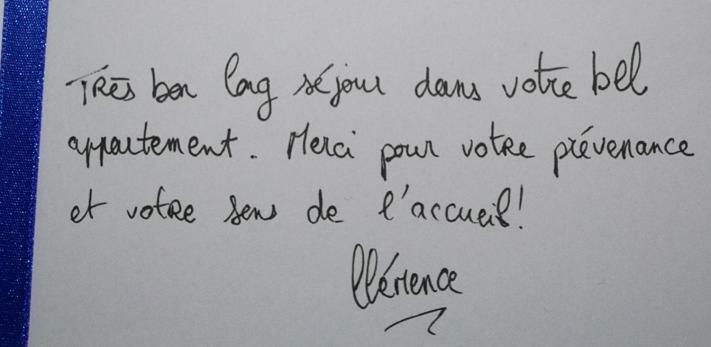 Très bon long séjour dans votre bel
appartement. Merci pour votre prévenance
et votre sens de l'accueil!